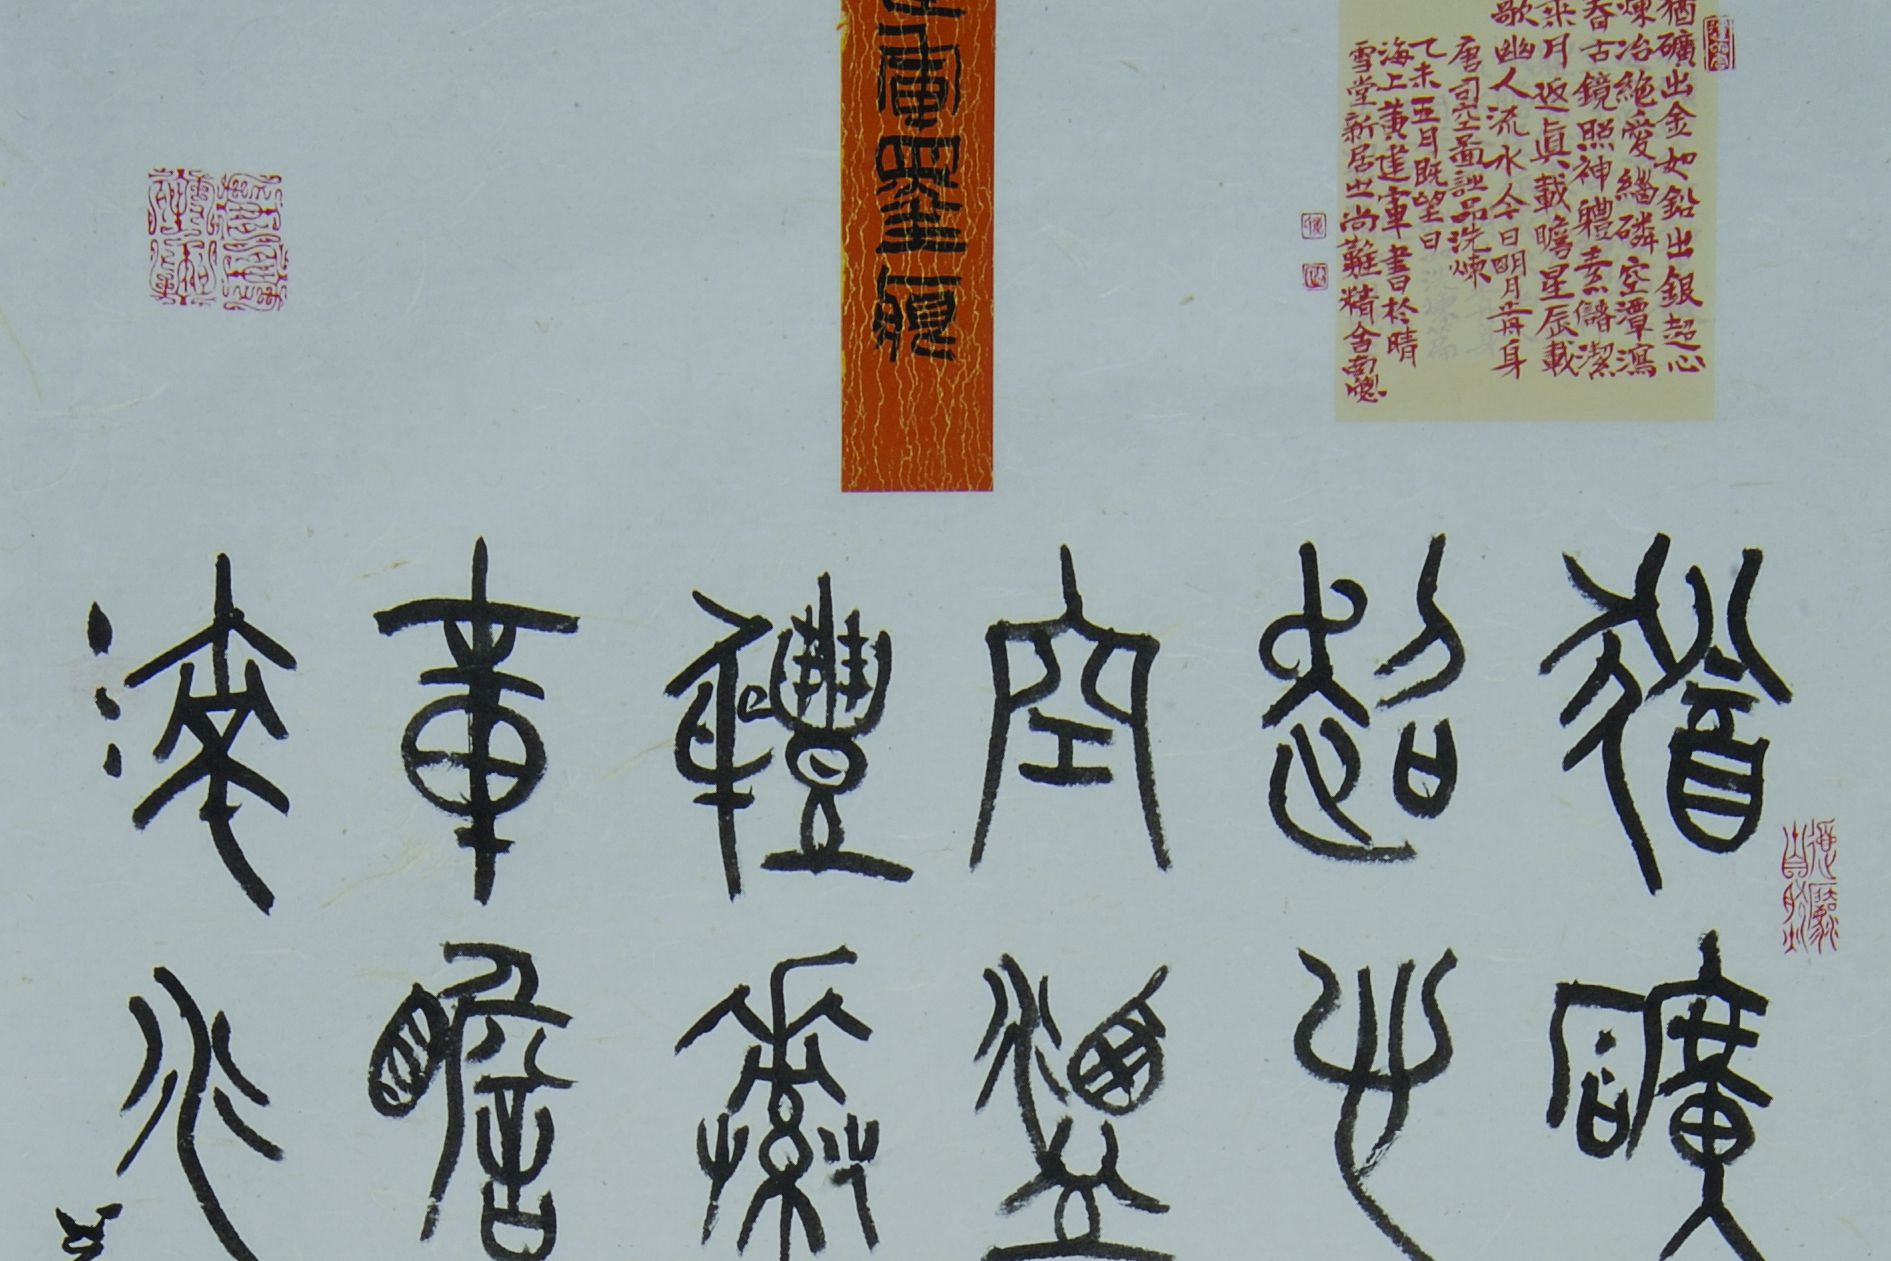 猶礦出金如鉛出銀超心
煉冶絕愛緇磷空潭瀉
春古鏡照神體素儲潔
乘月返真載瞻星辰載
歌幽人流水今日明月前身
唐司空圖詩品洗煉
乙未五月既望日
海上黃進軍書於晴
雪堂新居之尚難精舍南窗
軍墨
猶礦
超心
空潭
體素
載瞻
流水